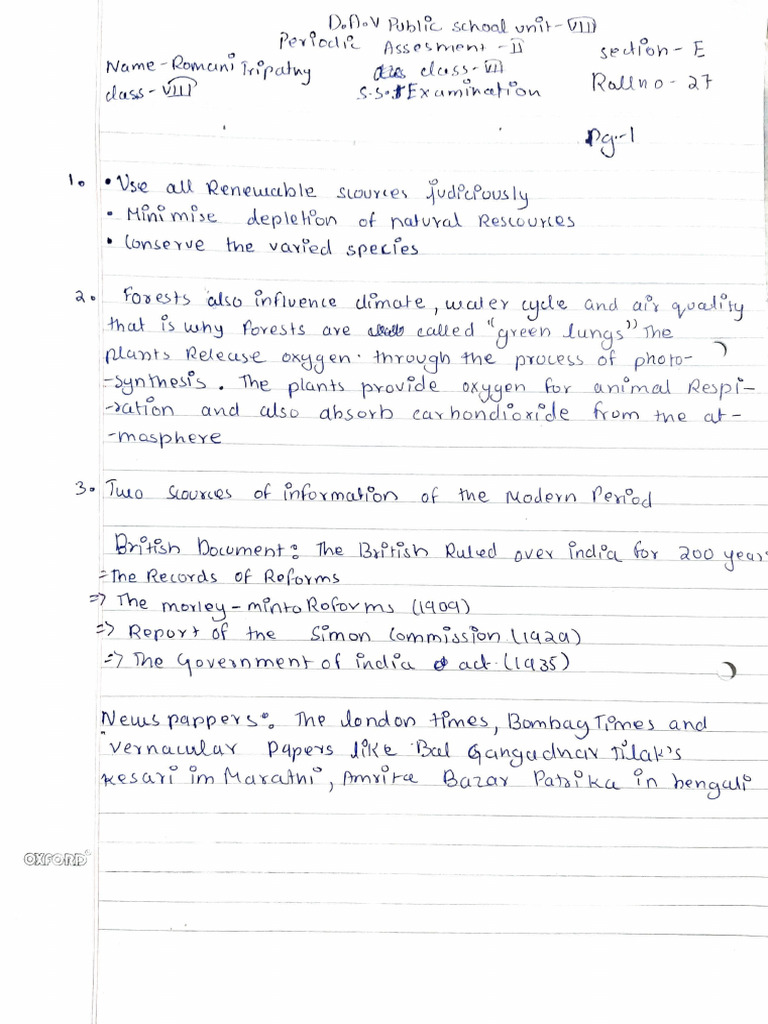 D.A.V Public school unit-VIII
Periodic Assesment-II
Name-Romani Tripathy class-VII section-E
class-VIII S.S.t Examination Rollno-27
Pg-1
1. • Use all Renewable scources judiciously
• Minimise depletion of natural Rescources
• Conserve the varied species
2. Forests also influence climate, water cycle and air quality
that is why forests are called "green lungs" The
plants Release oxygen. through the process of photo-
-synthesis. The plants provide oxygen for animal Respi-
-ration and also absorb carbondioxide from the at-
-masphere
3. Two scources of information of the Modern Period
British Document: The British Ruled over india for 200 years
=The Records of Reforms
=> The morley-minto Roforms (1909)
=> Report of the Simon Commission (1929)
=> The Government of india act. (1935)
News pappers: The london times, Bombay Times and
vernacular Papers like Bal Gangadhar Tilak's
kesari im Marathi, Amrita Bazar Patrika in bengali
OXFORD